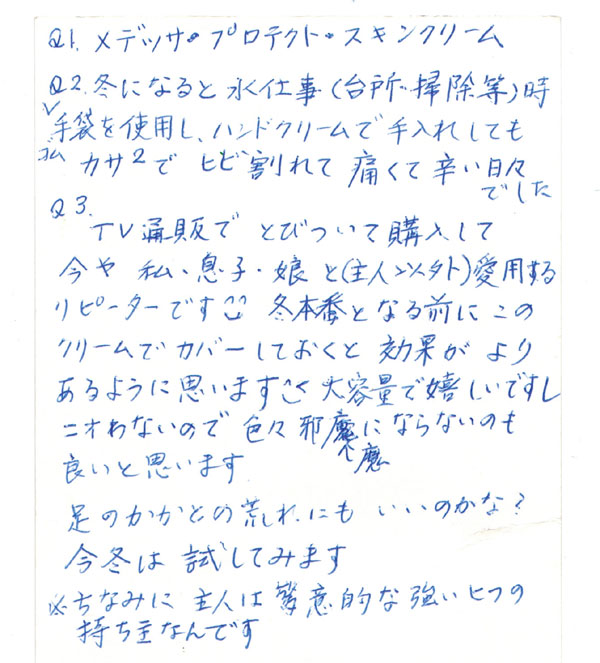 Q1. メデッサ・プロテクト・スキンクリーム
Q2. 冬になると水仕事(台所・掃除等)時
ゴム手袋を使用し、ハンドクリームで手入れしても
カサ2でヒビ割れて痛くて辛い日々
でした
Q3.
TV通販でとびついて購入して
今や私・息子・娘と(主人以外)愛用する
リピーターです 冬本番となる前にこの
クリームでカバーしておくと効果がより
あるように思います 大容量で嬉しいですし
ニオわないので色々邪魔にならないのも
魔
良いと思います
足のかかとの荒れにもいいのかな?
今冬は試してみます
※ちなみに主人は驚意的な強いヒフの
持ち主なんです